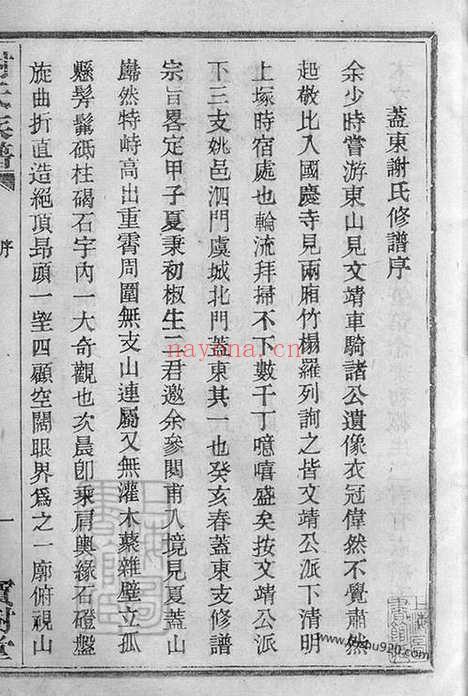 蓋東謝氏修譜序
余少時嘗游東山見文靖車騎諸公遺像衣冠偉然不覺肅然
起敬比入國慶寺見兩廂竹榻羅列詢之皆文靖公派下清明
上塚時宿處也輪流拜掃不下數千丁噫嘻盛矣按文靖公派
下三支姚邑泗門虞城北門蓋東其一也癸亥春蓋東支修譜
宗旨畧定甲子夏秉初椒生二君邀余參閱甫入境見夏蓋山
巋然特峙高出重霄周圍無支山連屬又無灌木蒙雜壁立孤
懸髣髴砥柱碣石宇內一大奇觀也次晨卽乘肩輿緣石磴盤
旋曲折直造絕頂昂頭一望四顧空闊眼界爲之一廓俯視山
序
一
寶樹堂
nayona.cn